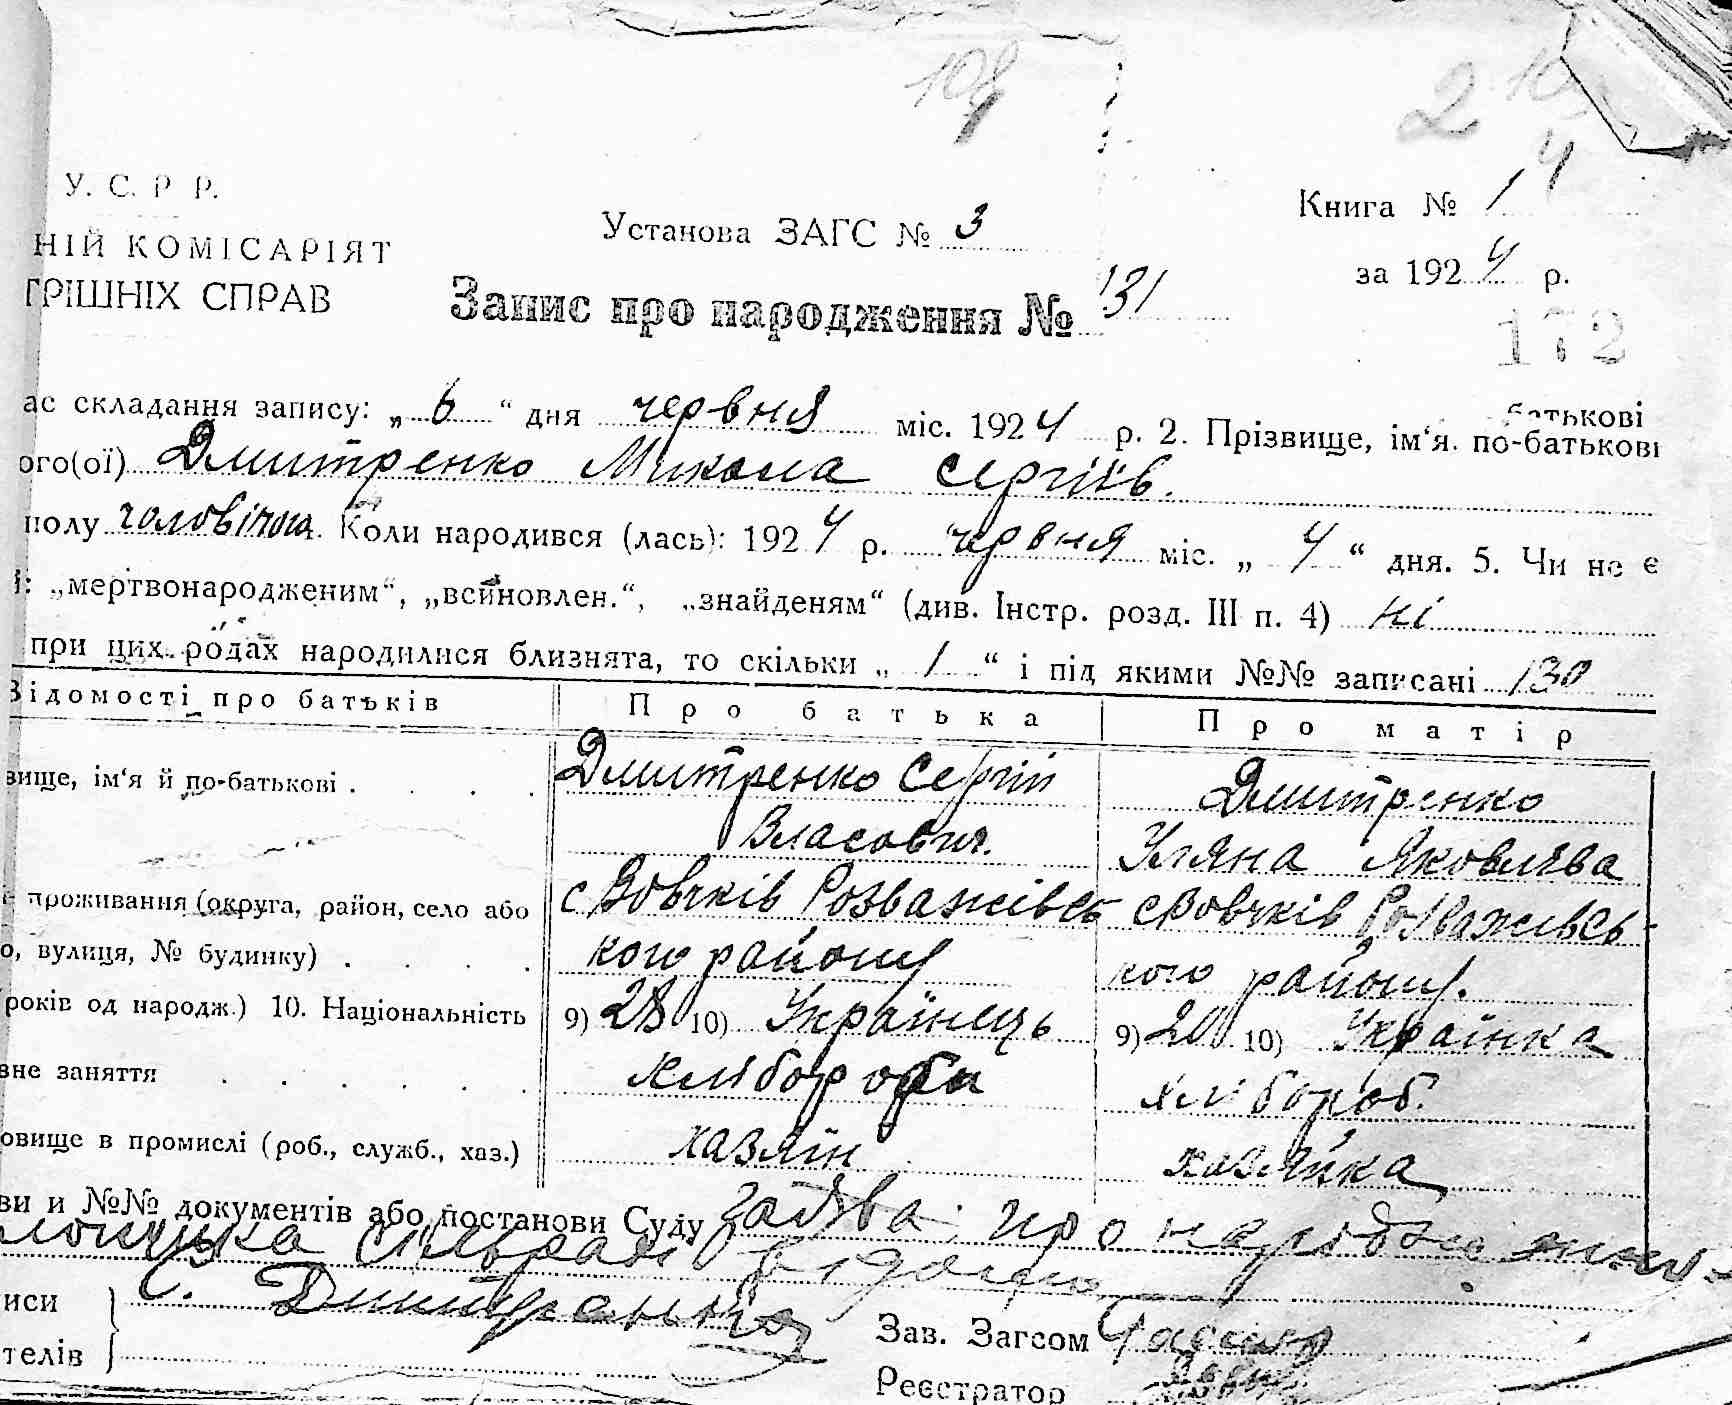 108
2
У. С. Р Р.
Книга № 1
НІЙ КОМІСАРІЯТ
Установа ЗАГС № 3
за 1924 р.
ТРІШНІХ СПРАВ
Запис про народження № 131
172
ас складання запису: „ 6 “ дня червня міс. 1924 р. 2. Прізвище, ім‘я. по-батькові
батькові
ого(ої) Дмитренко Микола Сергіїв.
полу чоловічого. Коли народився (лась): 1924 р. червня міс. „ 4 “ дня. 5. Чи не є
й: „мертвонародженим“, „всиновлен.“, „знайденям“ (див. Інстр. розд. III п. 4) ні
при цих родах народилися близнята, то скільки „ 1 “ і під якими №№ записані 130
Відомості про батьків Про батька Про матір
вище, ім‘я й по-батькові . . . . Дмитренко Сергій Дмитренко
Власович. Уляна Яковлева
проживання (округа, район, село або с Вовчків Розважівсь с Вовчків Розважівсь-
о, вулиця, № будинку) . . . . кого району кого району.
років од народж.) 10. Національність 9) 28 10) Українець 9) 20 10) Українка
вне заняття . . . . . . хлібороби хлібороб.
овище в промислі (роб., служб., хаз.) хазяїн хазяйка
ви и №№ документів або постанови Суду заява про народження
сільради
иси С. Дмитренко
Зав. Загсом
телів
Реєстратор